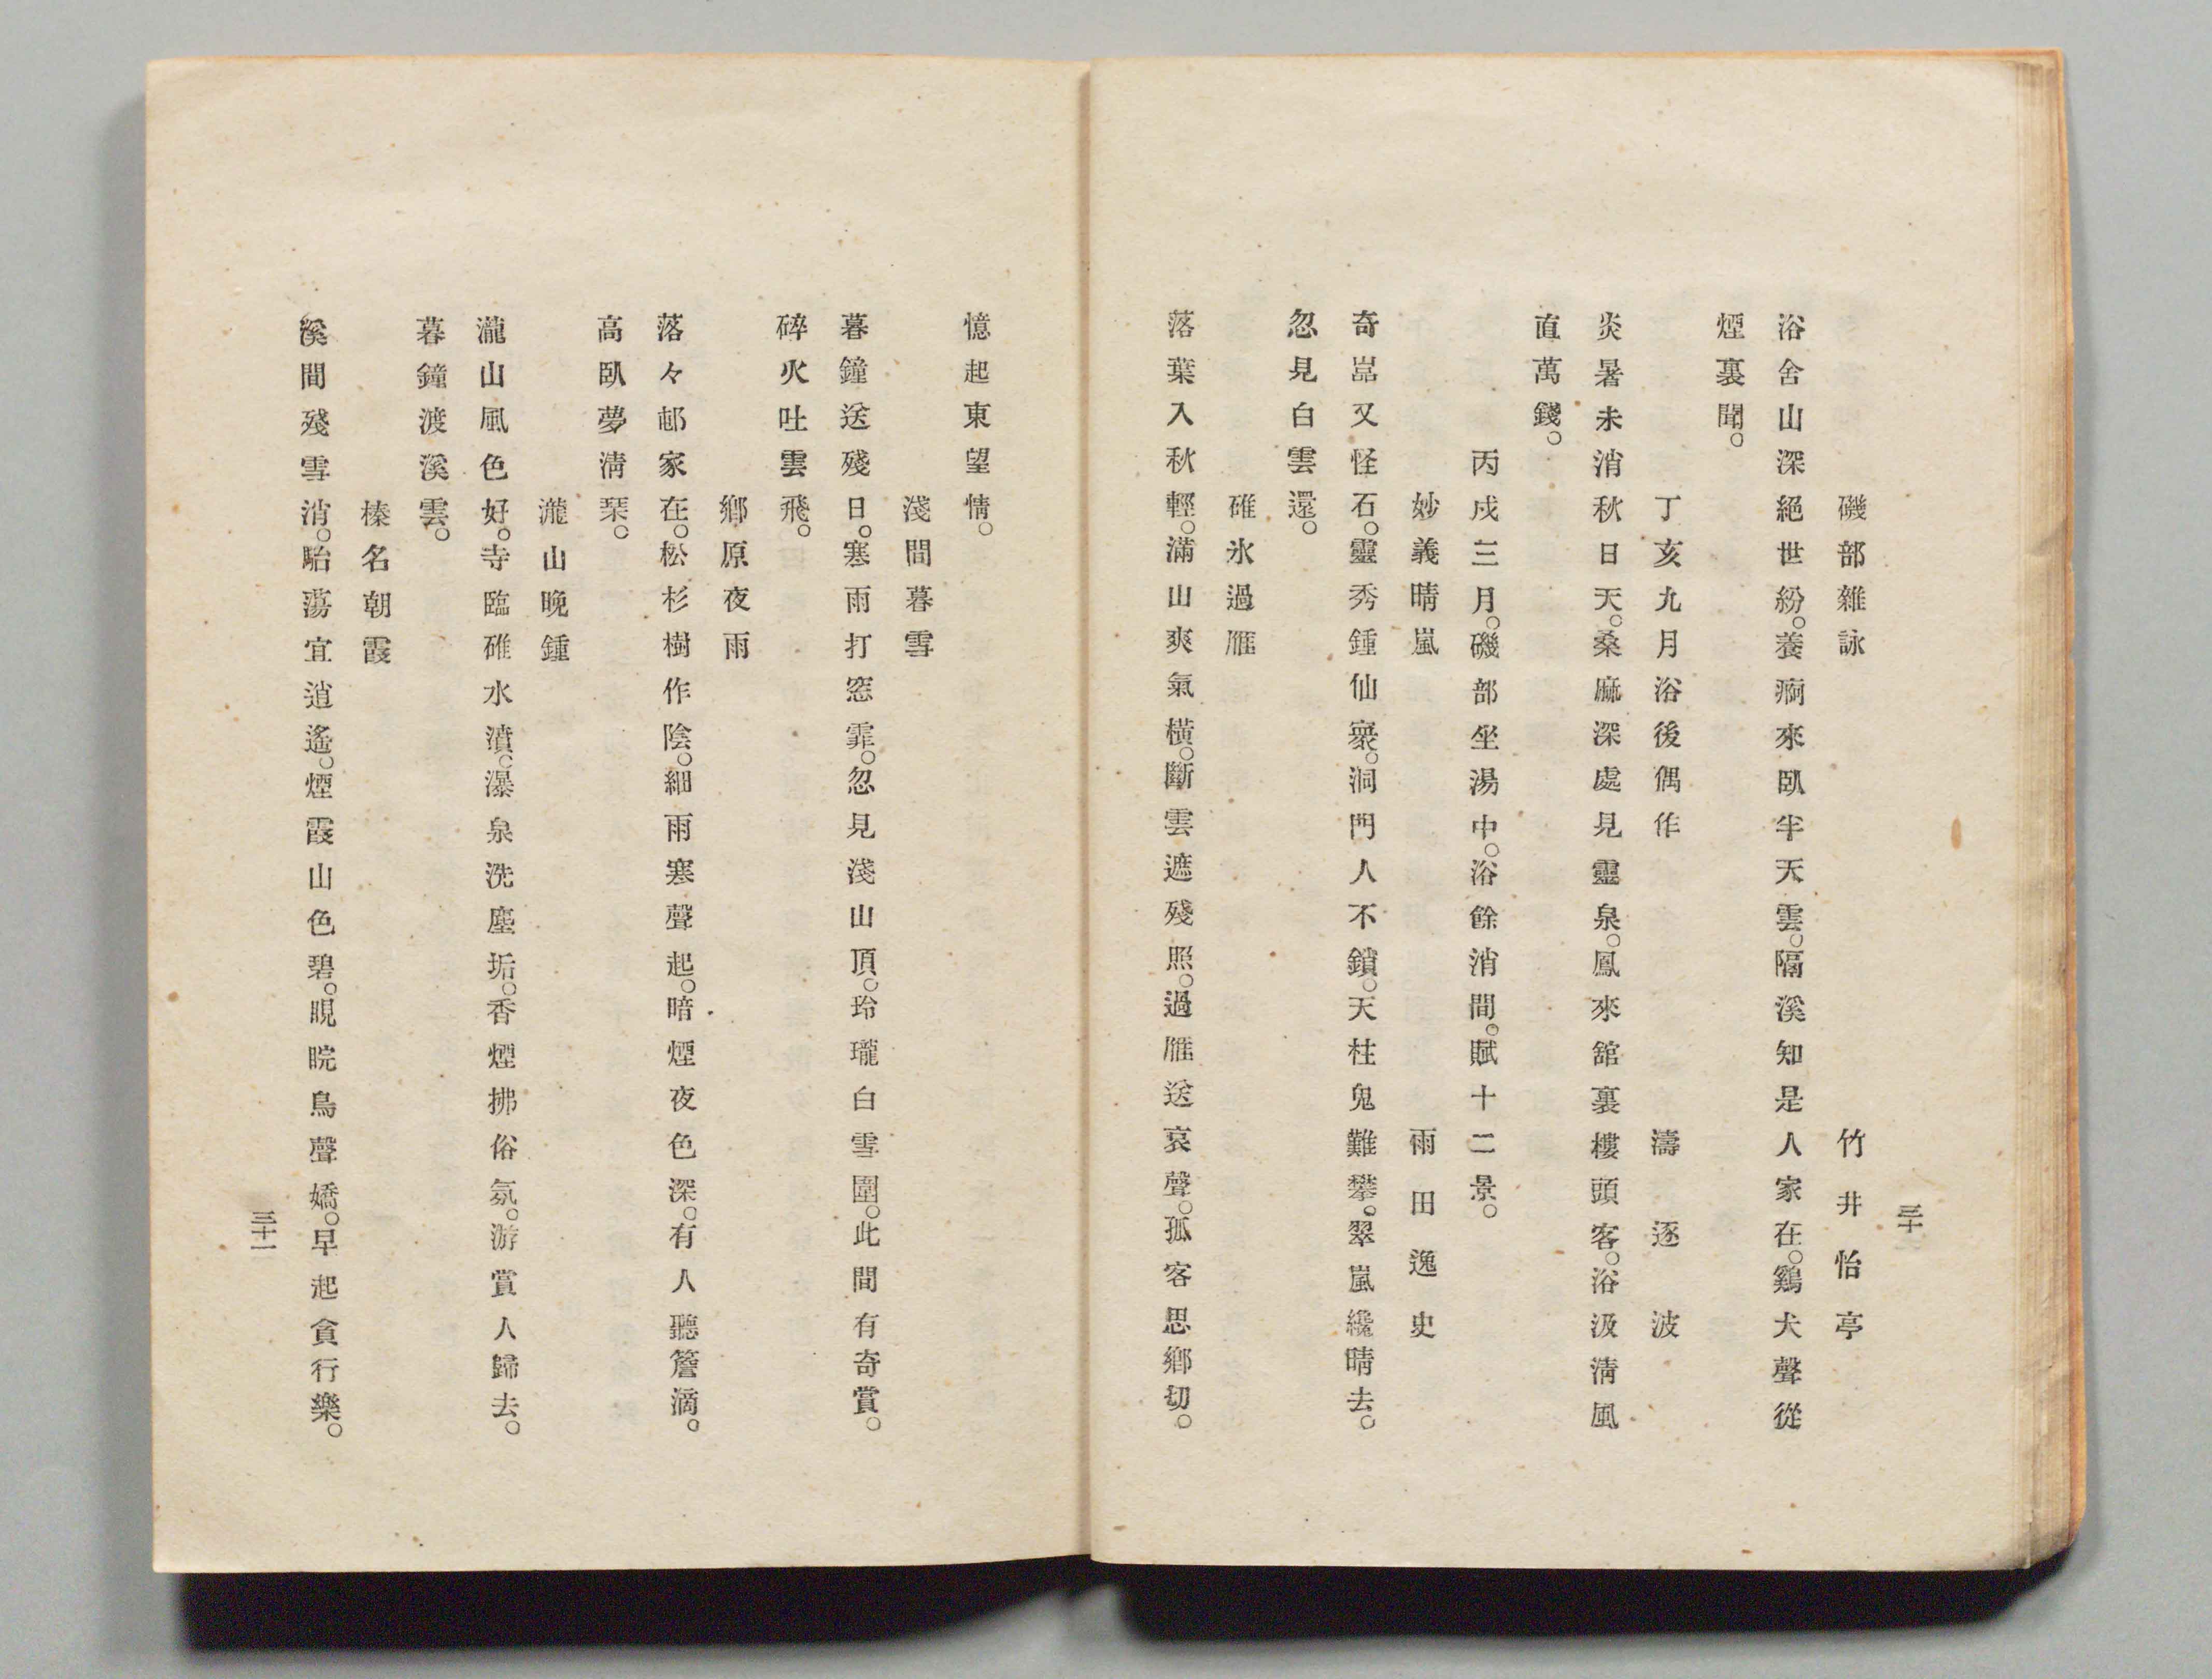 三十
磯部雜詠　竹井怡亭
浴舍山深絕世紛。養痾來臥半天雲。隔溪知是人家在。鷄犬聲從
煙裏聞。
丁亥九月浴後偶作　濤逐波
炎暑未消秋日天。桑麻深處見靈泉。鳳來舘裏樓頭客。浴汲淸風
直萬錢。
丙戌三月。磯部坐湯中。浴餘消間。賦十二景。
妙義晴嵐　雨田逸史
奇嵓又怪石。靈秀鍾仙寰。洞門人不鎖。天柱鬼難攀。翠嵐纔晴去。
忽見白雲還。
碓氷過雁
落葉入秋輕。滿山爽氣橫。斷雲遮殘照。過雁送哀聲。孤客思鄕切。
憶起東望情。
淺間暮雪
暮鐘送殘日。寒雨打窓霏。忽見淺山頂。玲瓏白雪圍。此間有奇賞。
碎火吐雲飛。
鄕原夜雨
落々邨家在。松杉樹作陰。細雨寒聲起。暗煙夜色深。有人聽簷滴。
高臥夢淸琹。
瀧山晚鍾
瀧山風色好。寺臨碓水濆。瀑泉洗塵垢。香煙拂俗氛。游賞人歸去。
暮鐘渡溪雲。
榛名朝霞
溪間殘雪消。駘蕩宜逍遙。煙霞山色碧。睍睆鳥聲嬌。早起貪行樂。
三十一